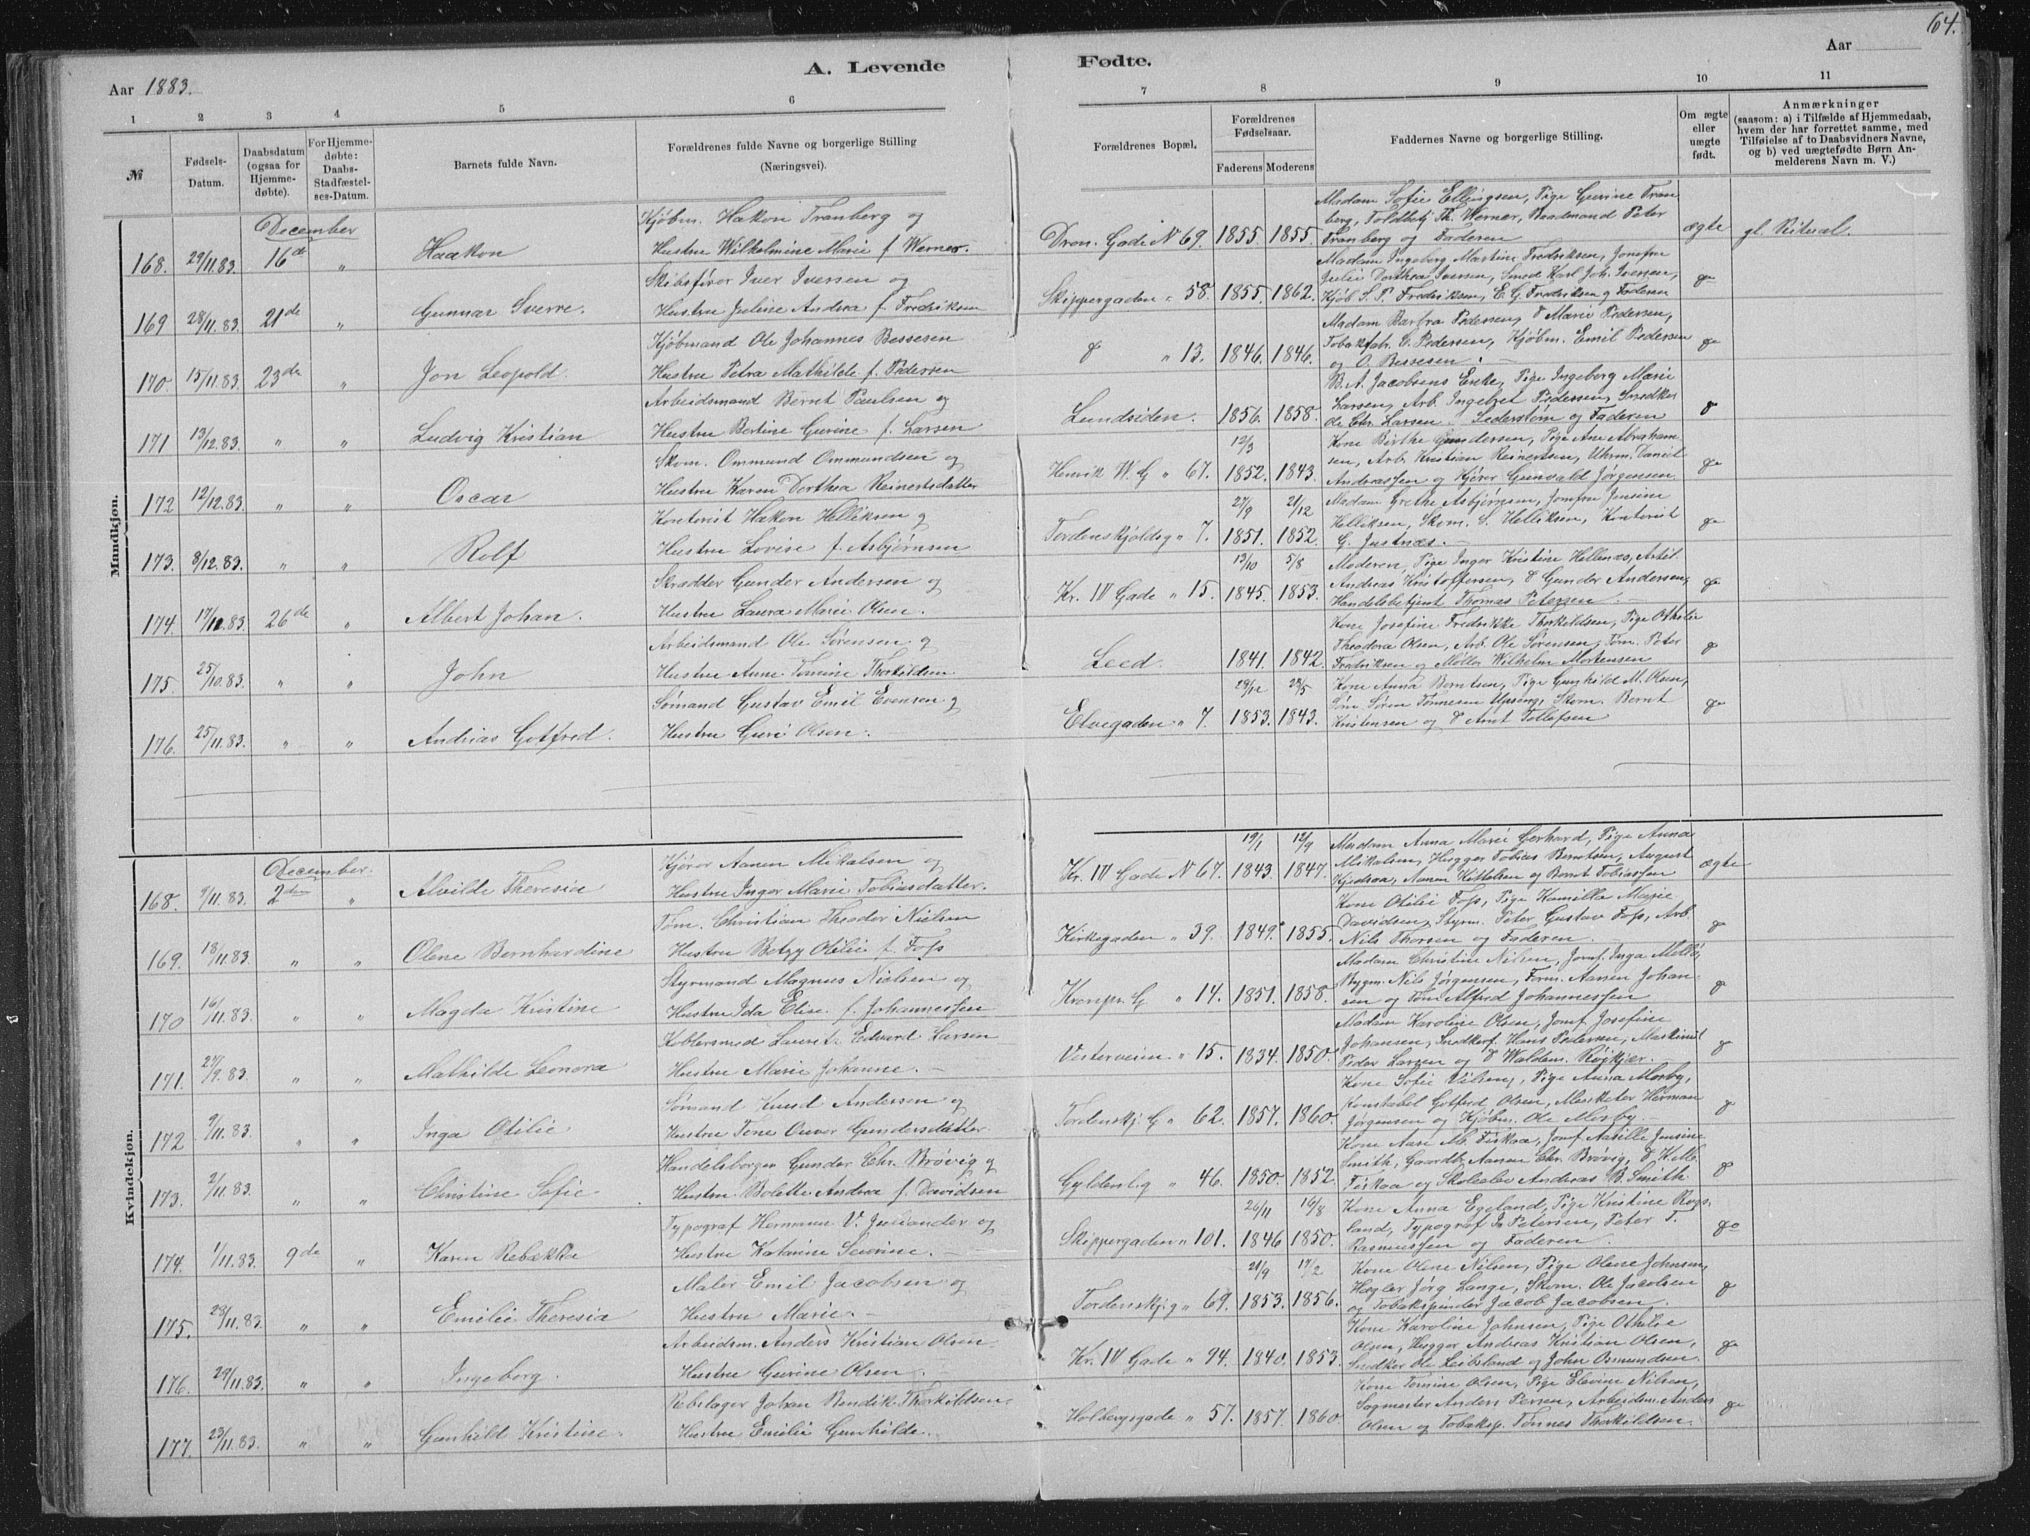 64.
A. Levende Fødte.
Aar 1883.
Aar
1 2 3 4 5 6 7 8 9 10 11
№
Fødsels-Datum.
Daabsdatum (ogsaa for Hjemmedøbte).
For Hjemmedøbte: Daabs-Stadfæstelses-Datum.
Barnets fulde Navn.
Forældrenes fulde Navne og borgerlige Stilling (Næringsvei).
Forældrenes Bopæl.
Forældrenes Fødselsaar.
Faderens Moderens
Faddernes Navne og borgerlige Stilling.
Om ægte eller uægte født.
Anmærkninger
(saasom: a) i Tilfælde af Hjemmedaab, hvem der har forrettet samme, med Tilføielse af to Daabsvidners Navne, og b) ved uægtefødte Børn Anmelderens Navn m. V.)
Mandkjøn.
December
168. 29/11.83. 16de " Haakon
Kjøbm. Hakon Tranberg og
Hustru Wilhelmine Marie f. Werner.
Dron. Gade N 69. 1855. 1855.
Madam Sofie Ellingsen, Pige Gurine Tran
berg, Toldbetj. Th. Werner, Baadmand Peter
Tranberg og Faderen
ægte gl. Ritual.
169 28/11.83. 21de " Gunnar Sverre.
Skibsfører Iver Iversen og
Hustru Juline Andrea f. Fredriksen
Skippergaden " 58. 1855. 1862.
Madam Ingeborg Martine Fredriksen, Jomfru
Julie Dorthea Iversen, Smed Karl Joh. Iversen,
Kjøb. S. P. Fredriksen, E. G. Fredriksen og Faderen
170. 15/11.83. 23de " Jon Leopold.
Kjøbmand Ole Johannes Bessesen
Hustru Petra Mathilde f. Pedersen
" 13. 1846. 1846.
Madam Barfra Pedersen, d Marie Pedersen,
Tobakfabr. G. Pedersen, Kjøbm. Emil Pedersen
og O. Bessesen.
171 13/12.83. " " Ludvig Kristian
Arbeidsmand Bernt Paulsen og
Hustru Bertine Gurine f. Larsen
Lundsiden. 1856. 1858.
B. A. Jacobsens Enke, Pige Ingeborg Marie
Larsen, Arb. Ingebret Pedersen, Snedker
Chr. Larsen. Sederstøm og Faderen
172 12/12.83. " " Oscar
Skom. Ommund Ommundsen og
Hustru Karen Dorthea Reinertsdatter
Henrik W. G " 67. 12/3 1852. 1843.
Kone Birthe Gundersen, Pige Ane Abraham
sen, Arb. Kristian Reinertsen, Uhrm. Daniel
Andreassen og Kjører Gunvald Jørgensen
173. 8/12.83. " " Rolf
Kontorist Hakon Helliksen og
Hustru Lovise f. Asbjørnsen
Tordenskjoldsg " 7. 27/9 1851. 21/12 1852.
Madam Grethe Asbjørnsen, Jomfru Jensine
Helliksen, Skom. S. Helliksen, Kontorist
G. Justnæs.
174. 17/10.83. 26de " Albert Johan.
Skrædder Gunder Andersen og
Hustru Laura Marie Olsen.
Kr. IV Gade " 15. 13/10 1845. 5/8 1853.
Moderen, Pige Inger Kristine Hellenæs, Artil.
Andreas Kristoffersen, d Gunder Andersen,
Handelsbetjent Thomas Petersen
175. 25/10.83. " " John
Arbeidsmand Ole Sørensen og
Hustru Anne Tomine Thorkildsen
Leed. 1841. 1842.
Kone Josefine Fredrikke Thorkildsen, Pige Othilie
Theodora Olsen, Arb. Ole Sørensen, Tøm. Peter
Fredriksen og Møller Wilhelm Mortensen
176. 25/11.83. " " Andrias Gotfred.
Sømand Gustav Emil Evensen og
Hustru Guri Olsen.
Elvegaden " 7. 29/12 1853. 28/5 1843.
Kone Anna Berntsen, Pige Gunhild M. Olsen,
Søm. Søren Tønnesen Upsing, Skom. Bernt
Kristensen og d Arnt Tollefsen
Kvindekjøn.
December.
168. 9/11.83. 2den " Alvilde Theresia
Kjører Aanen Mikalsen og
Hustru Inger Marie Tobiasdatter.
Kr. IV Gade N 67. 19/1 1843. 12/9 1847.
Madam Anna Marie Gerhard, Pige Anna
Mikalsen, Hugger Tobias Berntsen, August
Kjedsaa, Aanen Kittelsen og Bernt Tobiassen
ægte
169. 18/11.83. " " Olene Bernhardine
Tøm. Christian Theodor Nielsen
Hustru Betzy Otilie f. Foss
Kirkegaden " 39. 1849. 1855.
Kone Otilie Foss, Pige Kamilla Marie
Davidsen, Styrm. Peter Gustav Foss, Arb.
Nils Thorsen og Faderen.
170 16/11.83. " " Magda Kristine
Styrmand Magnus Nielsen og
Hustru Ida Elise f. Johannessen
Kronpr. G " 14. 1851. 1858.
Madam Christine Nilsen, Jomf. Inga Møller,
Bygm. Nils Jørgensen, Form. Aanen Johan
sen og Tøm. Alfred Johannessen
171. 27/9.83. " " Mathilde Leonora
Koblersmed Laurets Edvard Larsen
Hustru Marie Johanne.
Vesterveien " 15. 1834. 1850.
Madam Karoline Olsen, Jomf. Josefine
Johansen, Snedkerf. Hans Pedersen, Maskinist
Peder Larsen og d Waldem. Røikjær.
172 9/11.83. " " Inga Otilie
Sømand Knud Andersen og
Hustru Tone Gundersdatter
Tordenskj. G " 62. 1857. 1860.
Kone Sofie Nilsen, Pige Anna Mosby,
Konstabel Gotfred Olsen, Musketer Herman
Jørgensen og Kjøbm. Ole Mosby
173. 2/11.83. " " Christine Sofie
Handelsborger Gunder Chr. Brøvig og
Hustru Bolette Andrea f. Davidsen
Gyldenl. g " 46. 1850. 1852.
Kone Aase M. Fiskaa, Jomf. Mathille Jensine
Smith, Gaardb. Aanen Chr. Brøvig, d Kitil
Fiskaa og Skoleelev Andreas B. Smith
174. 1/11.83. 9de " Karen Rebekka
Typograf Hermann V. Juliander og
Hustru Katarine Severine.
Skippergaden " 101. 26/11 1846 16/8 1850.
Kone Anna Egeland, Pige Kristine Rogs
land, Typograf Petersen, Peter T.
Rasmussen og Faderen.
175. 28/11.83. " " Emilie Theresia
Maler Emil Jacobsen og
Hustru Marie.
Tordenskj. g " 69. 21/9 1853. 17/2 1856.
Kone Olene Nilsen, Pige Olene Johnsen,
Hegler Jørg. Lange, Skom. Ole Jacobsen
og Tobakspinder Jacob Jacobsen.
176. 29/11.83. " " Ingeborg.
Arbeidsm. Anders Kristian Olsen
Hustru Gurine Olsen.
Kr. IV Gade " 94. 1840. 1853.
Kone Karoline Johnsen, Pige Othilie
Olsen, Hugger Andreas Kristian Olsen,
Snedker Ole Leibsland og John Osmundsen.
177. 23/11.83. " " Gunhild Kristine.
Rebslager Johan Bendik Thorkildsen
Hustru Emilie Gunhilde.
Holbergsgade " 57. 1857. 1860.
Kone Tomine Olsen, Pige Elevine Nilsen,
Sagmester Anders Persen, Arbeidsm. Anders
Olsen og Tobaksp. Tønnes Thorkildsen.